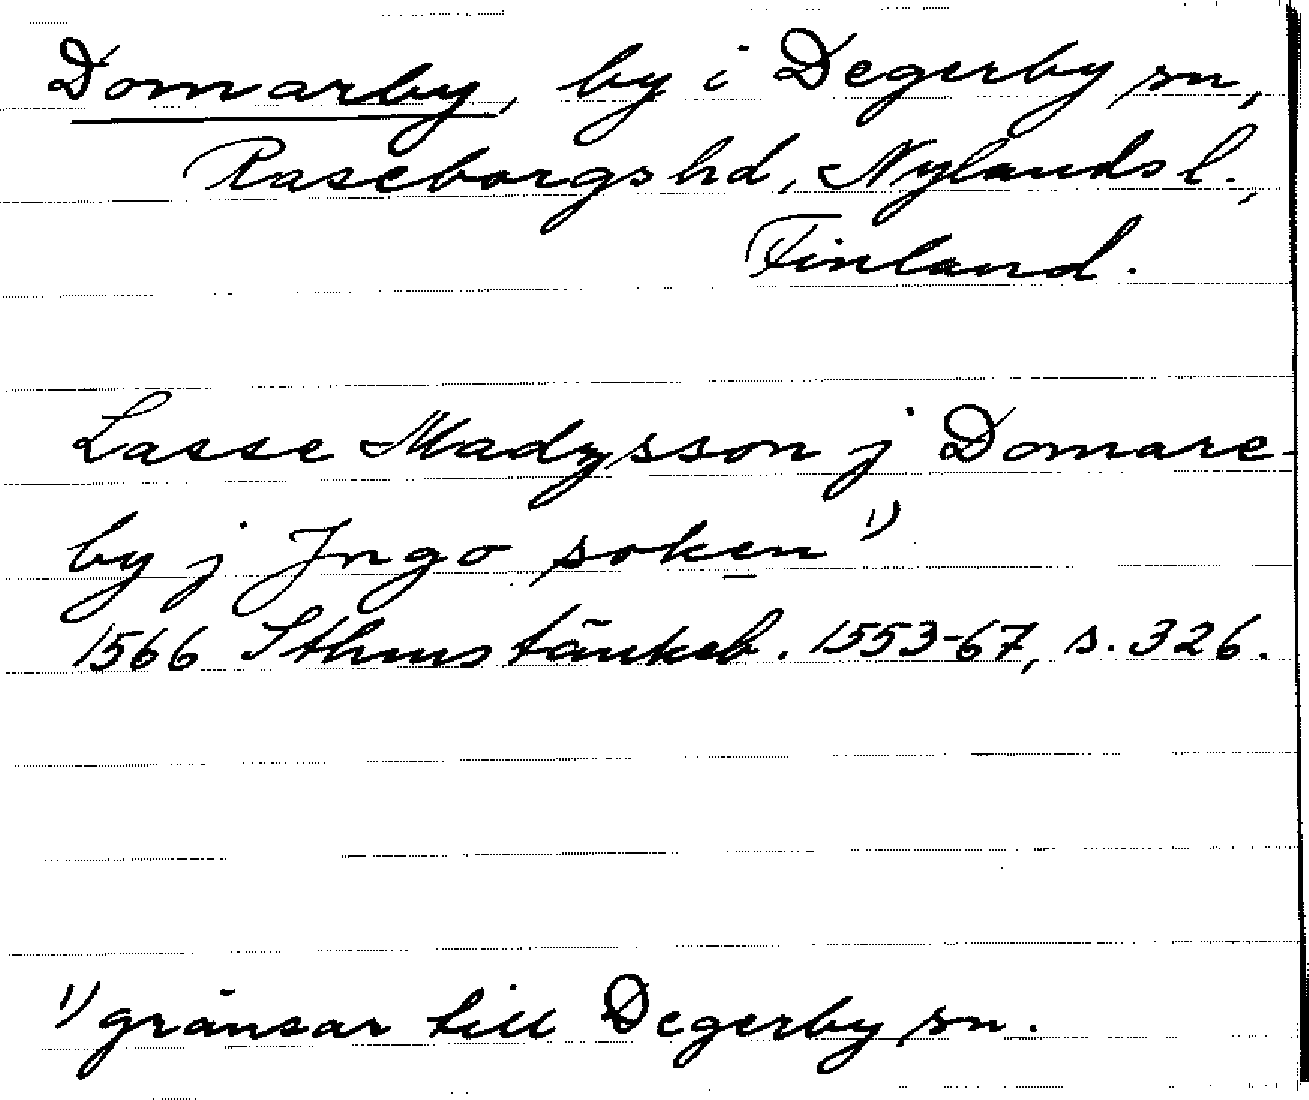 Domarby, by i Degerby sn,
Raseborgs hd, Nylands l.,
Finland.
Lasse Madzsson j Domare-
by j Jngo soken 1)
1566 Sthms tänkeb. 1553-67, s. 326.
1) gränsar till Degerby sn.